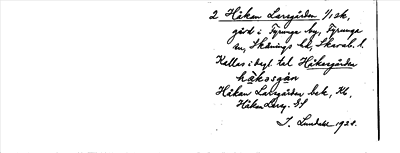 2 Håkan Larsgården 1/1 sk,
gård i Tyringe by, Tyringe
sn, Skånings hd, Skarab. l.
Kallas i dagl. tal Håkagården
håkasgån
Håkan Larsgården bek, Kb,
Håkan Larsg. GS
I. Lundahl 1928.